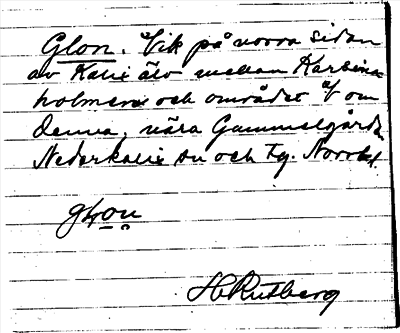 Glon. Vik på norra sidan
av Kalix älv mellan Karlsina
holmen och området V om
denna, nära Gammelgården
Nederkalix sn och tg. Norrbt.
glon
H Rutberg